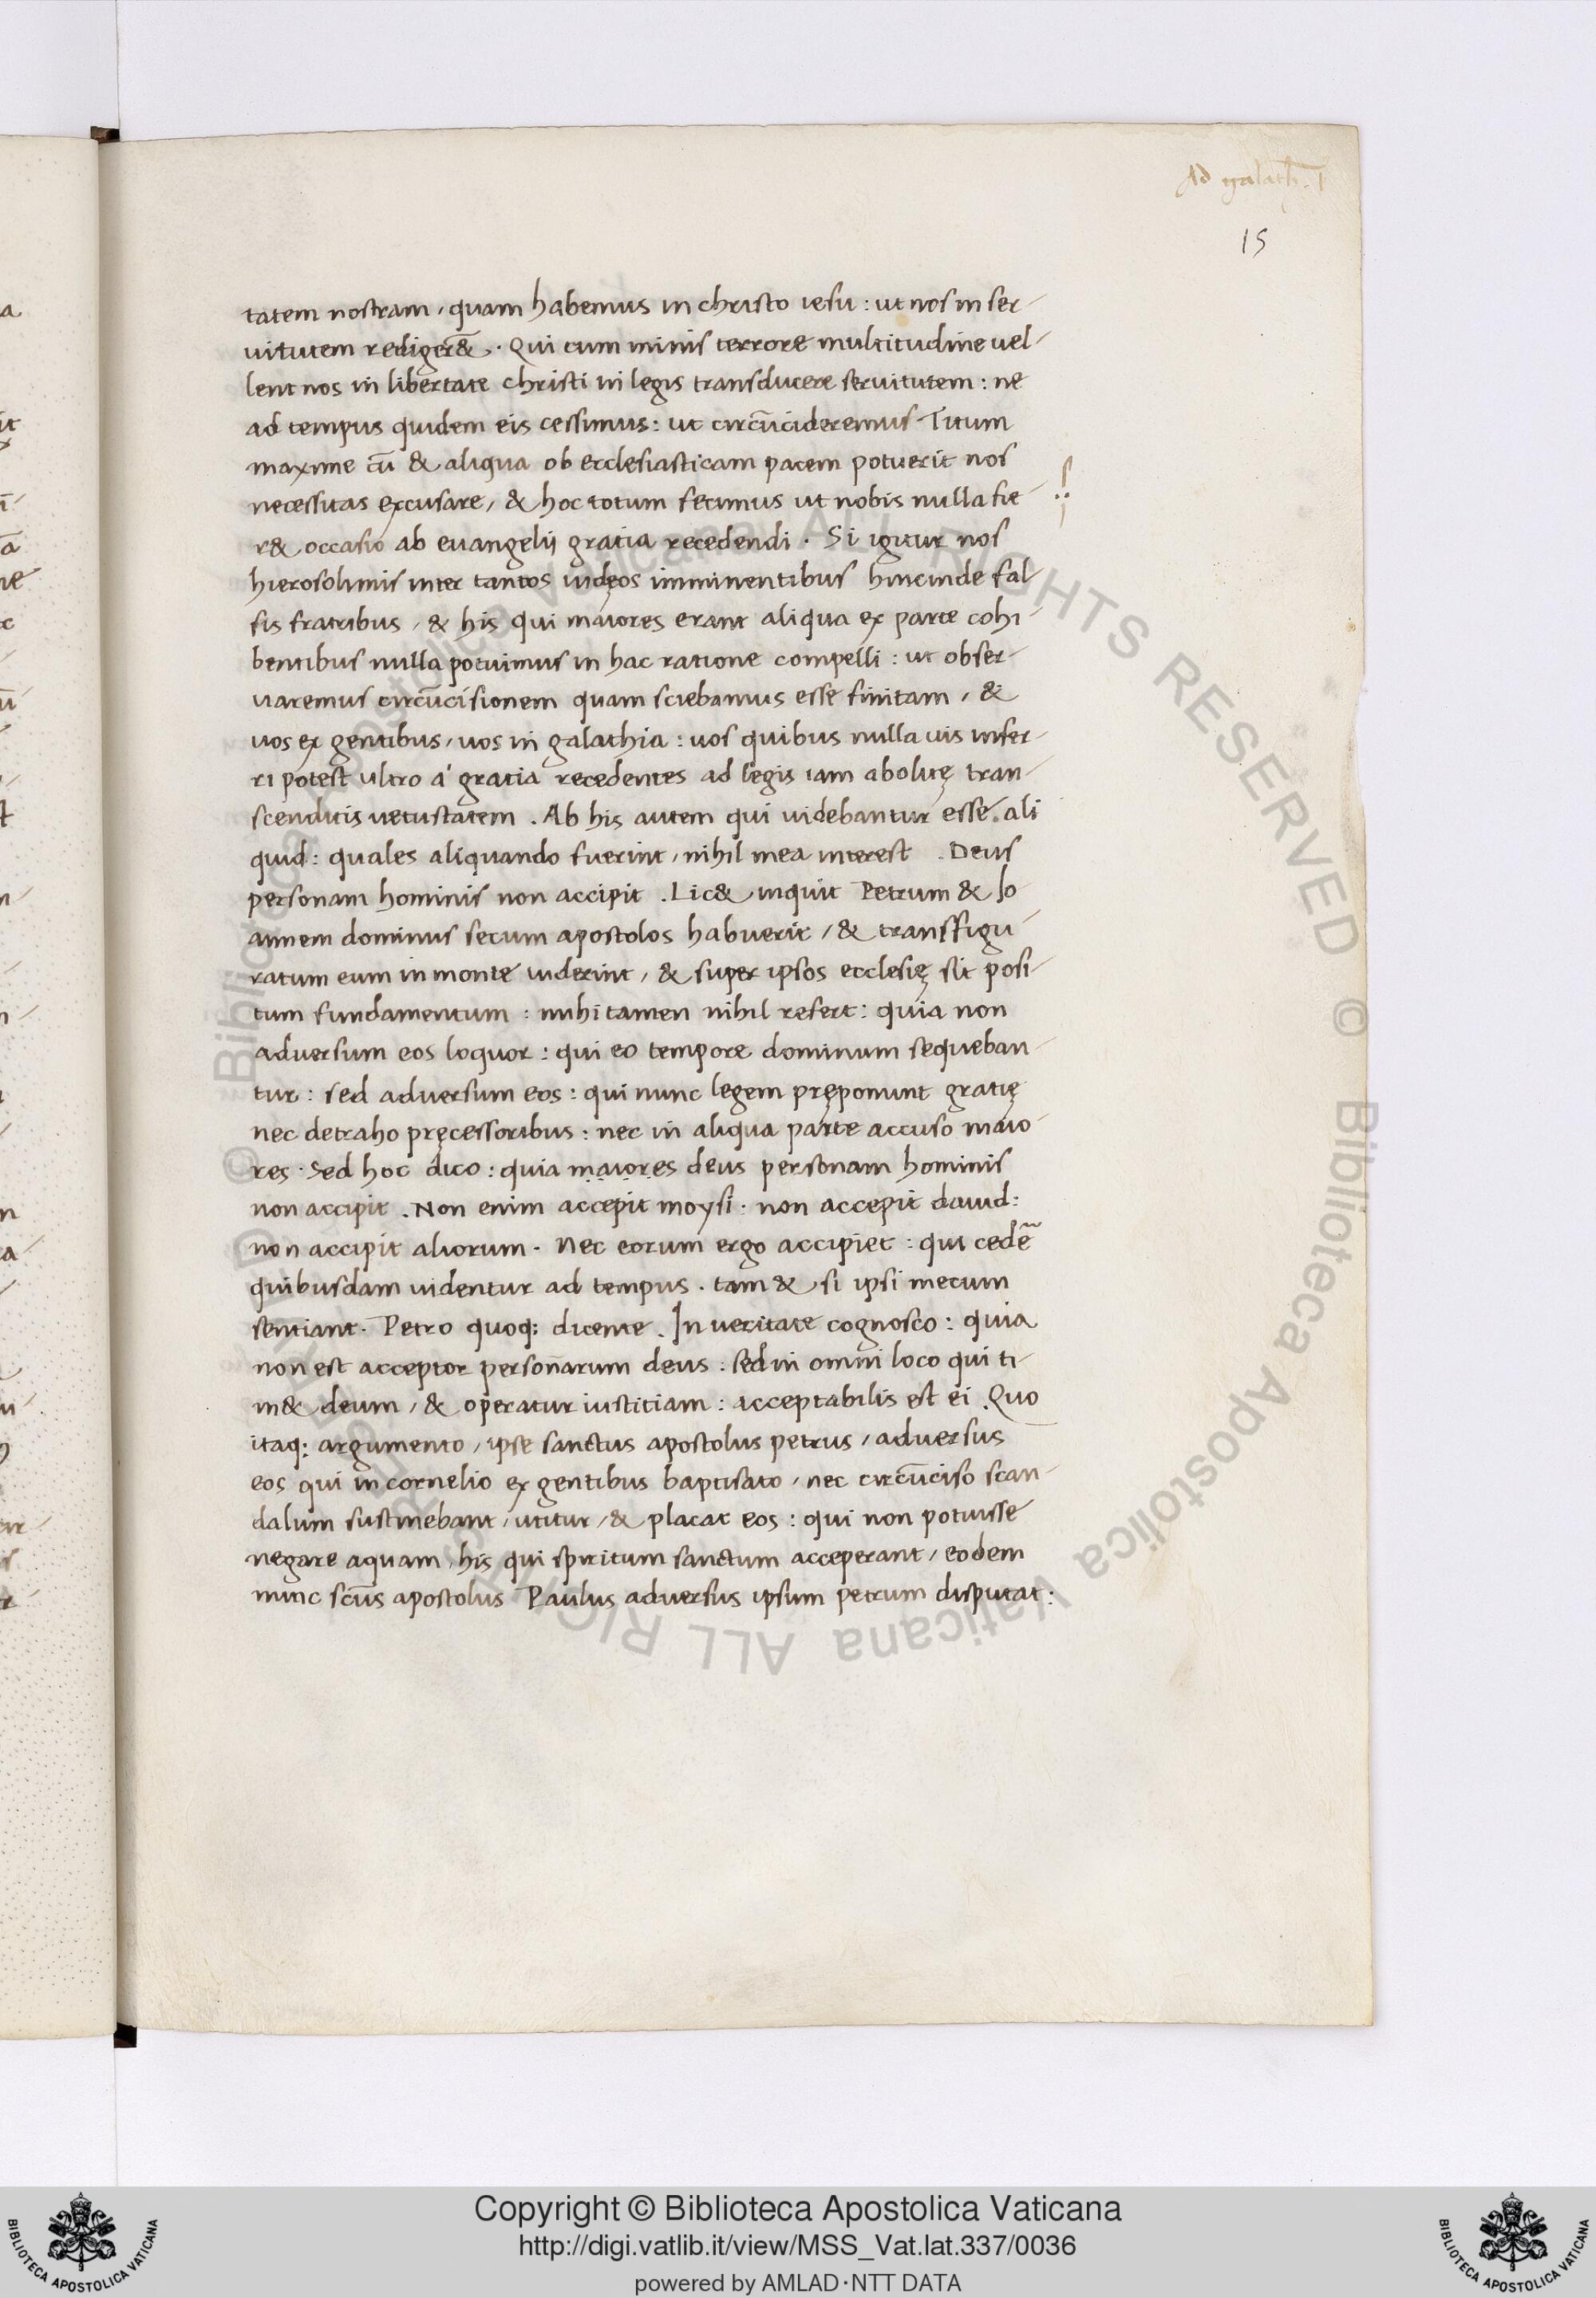 Ad galath. I
15
tatem nostram, quam habemus in christo iesu : ut nos in ser-
uitutem redigerẽ& . Qui cum minis terrore multitudine uel-
lent nos in libertate christi in legis transducere seruitutem : ne
ad tempus quidem eis cessimus : ut circũcideremus Titum
maxime cũ & aliqua ob ecclesiasticam pacem potuerit nos
necessitas excusare, & hoc totum fecimus ut nobis nulla fie-
r& occasio ab euangelij gratia recedendi . Si igitur nos
hierosolimis inter tantos iudęos imminentibus hincinde fal-
sis fratribus, & his qui maiores erant aliqua ex parte cohi-
bentibus nulla potuimus in hac ratione compelli : ut obser-
uaremus circũcisionem quam sciebamus esse finitam, &
uos ex gentibus, uos in galathia : uos quibus nulla uis infer-
ri potest ultro á gratia recedentes ad legis iam abolitę tran-
scenditis uetustatem . Ab his autem qui uidebantur esse ali
quid : quales aliquando fuerint, nihil mea interest . Deus
personam hominis non accipit . Lic& inquit Petrum & Io-
annem dominus secum apostolos habuerit, & transfigu-
ratum eum in monte uiderint, & super ipsos ecclesię sit posi-
tum fundamentum : mihi tamen nihil refert : quia non
aduersum eos loquor : qui eo tempore dominum sequeban-
tur : sed aduersum eos : qui nunc legem pręponunt gratię
nec detraho pręcessoribus : nec in aliqua parte accuso maio-
res . Sed hoc dico : quia maiores deus personam hominis
non accipit . Non enim accepit moysi . non accepit dauid :
non accipit aliorum . Nec eorum ergo accipiet : qui cedẽ
quibusdam uidentur ad tempus . tam & si ipsi mecum
sentiant . Petro quoq; dicente . In ueritate cognosco : quia
non est acceptor personarum deus : sed in omni loco qui ti-
m& deum, & operatur iustitiam : acceptabilis est ei . Quo
itaq; argumento, ipse sanctus apostolus petrus, aduersus
eos qui in cornelio ex gentibus baptisato, nec circũciso scan-
dalum sustinebant, utitur, & placat eos : qui non potuisse
negare aquam, his qui spiritum sanctum acceperant, eodem
nunc scũs apostolus Paulus aduersus ipsum petrum disputat :
© Biblioteca Apostolica Vaticana ALL RIGHTS RESERVED
© Biblioteca Apostolica Vaticana ALL RIGHTS RESERVED
Copyright © Biblioteca Apostolica Vaticana
http://digi.vatlib.it/view/MSS_Vat.lat.337/0036
powered by AMLAD·NTT DATA
BIBLIOTECA APOSTOLICA VATICANA
BIBLIOTECA APOSTOLICA VATICANA